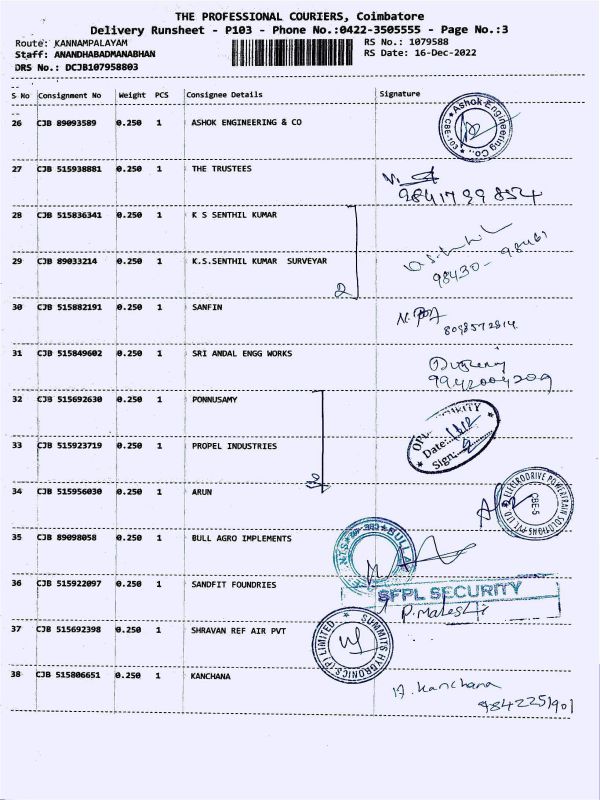 THE PROFESSIONAL COURIERS, Coimbatore
Delivery Runsheet - P103 - Phone No.:0422-3505555 - Page No.:3
Route: KANNAMPALAYAM RS No.: 1079588
Staff: ANANDHABADMANABHAN RS Date: 16-Dec-2022
DRS No.: DCJB107958803
S No Consignment No Weight PCS Consignee Details Signature
26 CJB 89093589 0.250 1 ASHOK ENGINEERING & CO
Ashok Engineering Co., CBE-103
27 CJB 515938881 0.250 1 THE TRUSTEES
9841799854
28 CJB 515836341 0.250 1 K S SENTHIL KUMAR
29 CJB 89033214 0.250 1 K.S.SENTHIL KUMAR SURVEYAR
98430- 98461
2
30 CJB 515882191 0.250 1 SANFIN
8098572814
31 CJB 515849602 0.250 1 SRI ANDAL ENGG WORKS
9942004209
32 CJB 515692630 0.250 1 PONNUSAMY
Date:
Sign:
33 CJB 515923719 0.250 1 PROPEL INDUSTRIES
34 CJB 515956030 0.250 1 ARUN
ELECTRODRIVE POWERTRAIN SOLUTIONS PVT. LTD. CBE-5
35 CJB 89098058 0.250 1 BULL AGRO IMPLEMENTS
BULL
36 CJB 515922097 0.250 1 SANDFIT FOUNDRIES
SFPL SECURITY
37 CJB 515692398 0.250 1 SHRAVAN REF AIR PVT
SUMMITS HYGRONICS (P) LIMITED
38 CJB 515806651 0.250 1 KANCHANA
Kanchana
9842251901